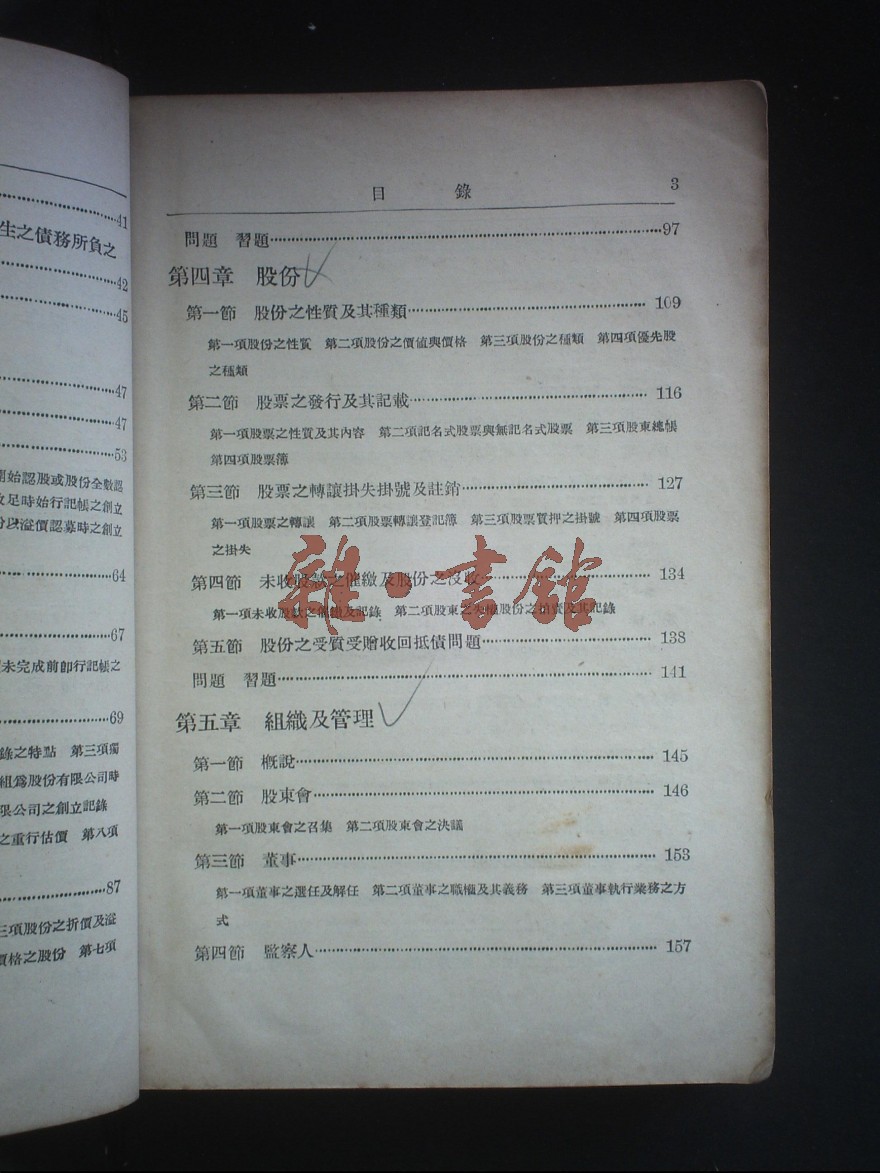 41
生之債務所負之
42
45
47
47
53
開始認股或股份全數認
收足時始行記帳之創立
份以溢價認募時之創立
64
67
未完成前卽行記帳之
69
錄之特點 第三項獨
組爲股份有限公司時
限公司之創立記錄
之重行估價 第八項
87
三項股份之折價及溢
價格之股份 第七項
目錄 3
問題 習題 97
第四章 股份
第一節 股份之性質及其種類 109
第一項股份之性質 第二項股份之價値與價格 第三項股份之種類 第四項優先股
之種類
第二節 股票之發行及其記載 116
第一項股票之性質及其內容 第二項記名式股票與無記名式股票 第三項股東總帳
第四項股票簿
第三節 股票之轉讓掛失掛號及註銷 127
第一項股票之轉讓 第二項股票轉讓登記簿 第三項股票質押之掛號 第四項股票
之掛失
第四節 未收股款之催繳及股份之沒收 134
第一項未收股款之催繳及記錄 第二項股東之失權股份之拍賣及其記錄
第五節 股份之受質受贈收回抵債問題 138
問題 習題 141
第五章 組織及管理
第一節 槪說 145
第二節 股東會 146
第一項股東會之召集 第二項股東會之決議
第三節 董事 153
第一項董事之選任及解任 第二項董事之職權及其義務 第三項董事執行業務之方
式
第四節 監察人 157
雜·書館